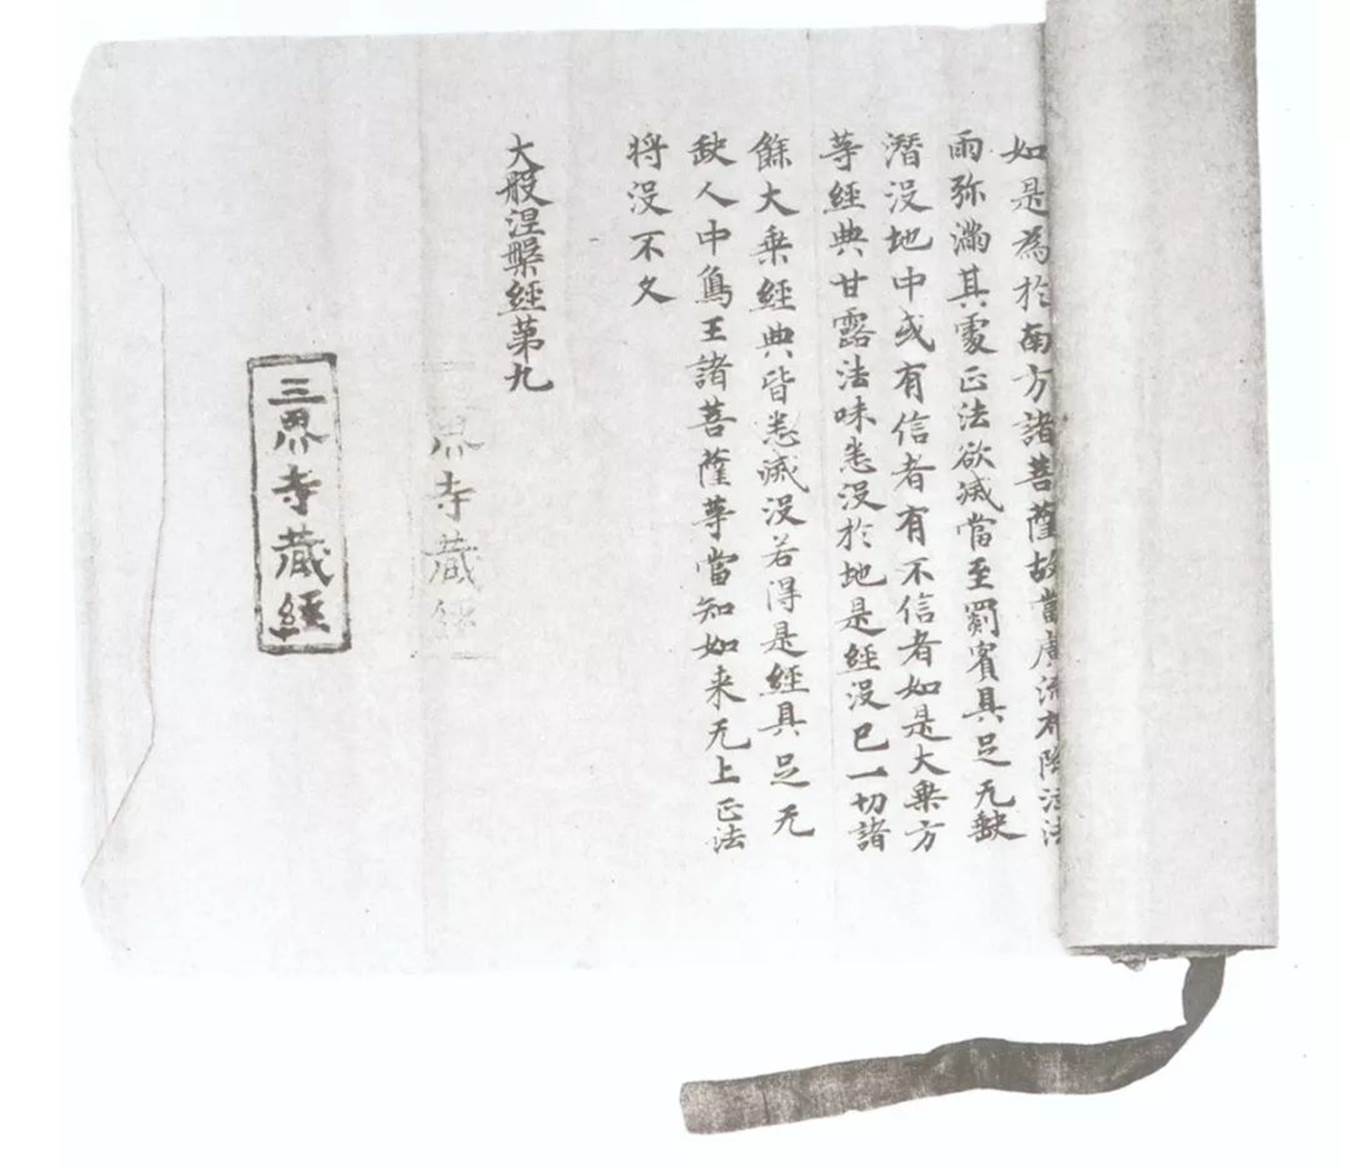 如是為於南方諸菩薩故當廣流布降注法
雨弥滿其處正法欲滅當至罽賓具足无缺
潛没地中或有信者有不信者如是大乗方
等經典甘露法味悉没於地是經没已一切諸
餘大乗經典皆悉滅没若得是經具足无
缺人中鳥王諸菩薩等當知如来无上正法
将没不久
大般涅槃經第九
界寺藏經
三界寺藏經